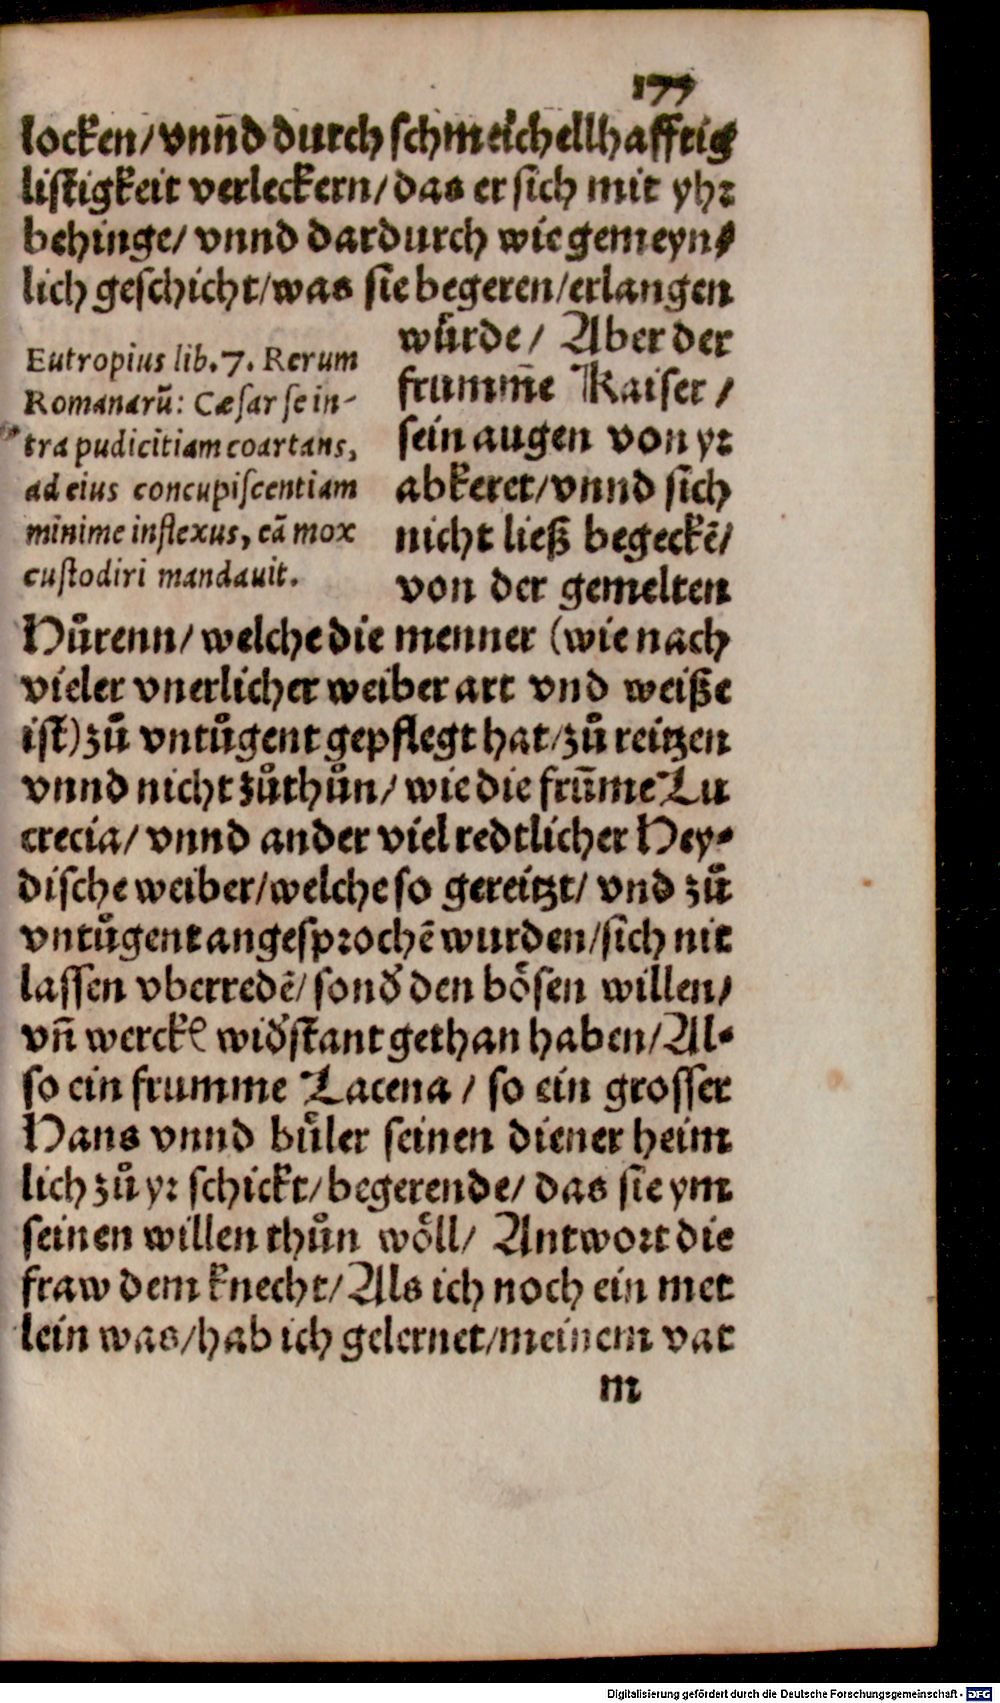 177
locken/ vnn̄d durch schmeichellhafftig
listigkeit verleckern/ das er sich mit yhr
behinge/ vnnd dardurch wie gemeyn⸗
lich geschicht/ was sie begeren/ erlangen
wuͤrde/ Aber der
frumm̄e Kaiser /
sein augen von yr
abkeret/ vnnd sich
nicht ließ begeckē/
von der gemelten
Eutropius lib. 7. Rerum
Romanarū: Cæsar se in-
tra pudicitiam coartans,
ad eius concupiscentiam
minime inflexus, eā mox
custodiri mandauit.
Huͤrenn/ welche die menner (wie nach
vieler vnerlicher weiber art vnd weiße
ist) zuͦ vntuͦgent gepflegt hat/ zuͦ reitzen
vnnd nicht zuͦthuͦn/ wie die frūme Lu
crecia/ vnnd ander viel redtlicher Hey⸗
dische weiber/ welche so gereitzt/ vnd zuͦ
vntuͦgent angesprochē wurden/ sich nit
lassen vberredē/ sond̓ den boͤsen willen/
vn̄ werckꝭ wid̓stant gethan haben/ Al⸗
so ein frumme Lacena / so ein grosser
Hans vnnd buͤler seinen diener heim
lich zuͦ yr schickt/ begerende/ das sie ym
seinen willen thuͦn woͤll/ Antwort die
fraw dem knecht/ Als ich noch ein met
lein was/ hab ich gelernet/ meinem vat
m
Digitalisierung gefördert durch die Deutsche Forschungsgemeinschaft - DFG